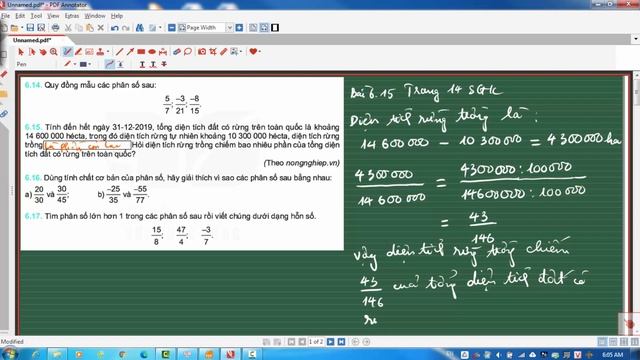 Unnamed.pdf* - PDF Annotator
File Edit View Insert Extras Tools Window Help
Page Width
Unnamed.pdf*
6.14. Quy đồng mẫu các phân số sau:
5/7; -3/21; -8/15.
6.15. Tính đến hết ngày 31-12-2019, tổng diện tích đất có rừng trên toàn quốc là khoảng
14 600 000 hécta, trong đó diện tích rừng tự nhiên khoảng 10 300 000 hécta, diện tích rừng
trồng là phần còn lại Hỏi diện tích rừng trồng chiếm bao nhiêu phần của tổng diện
tích đất có rừng trên toàn quốc?
(Theo nongnghiep.vn)
6.16. Dùng tính chất cơ bản của phân số, hãy giải thích vì sao các phân số sau bằng nhau:
a) 20/30 và 30/45; b) -25/35 và -55/77.
6.17. Tìm phân số lớn hơn 1 trong các phân số sau rồi viết chúng dưới dạng hỗn số.
15/8; 47/4; -3/7.
Bài 6.15 Trang 14 SGK
Diện tích rừng trồng là:
14 600000 - 10 300000 = 4300000 ha
4300000/14 600000 = 4300000:100000/14600000:100000
= 43/146
Vậy diện tích rừng trồng chiếm
43/146 của tổng diện tích đất có
Modified
1 of 2
EN
6:05 AM